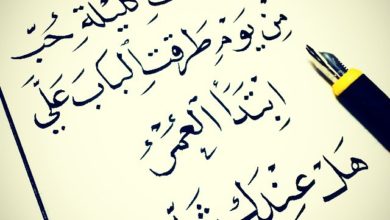 كليلة حب
من يوم طرقتِ الباب عليّ
ابتدأ العمر
هل عندك